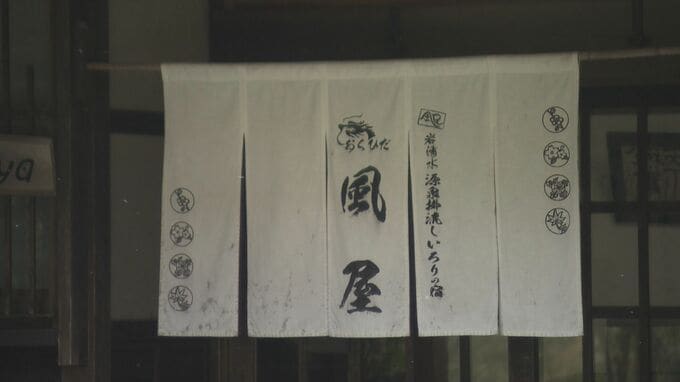 岩清水 源泉掛流しいろりの宿
おくひだ
風屋
ya